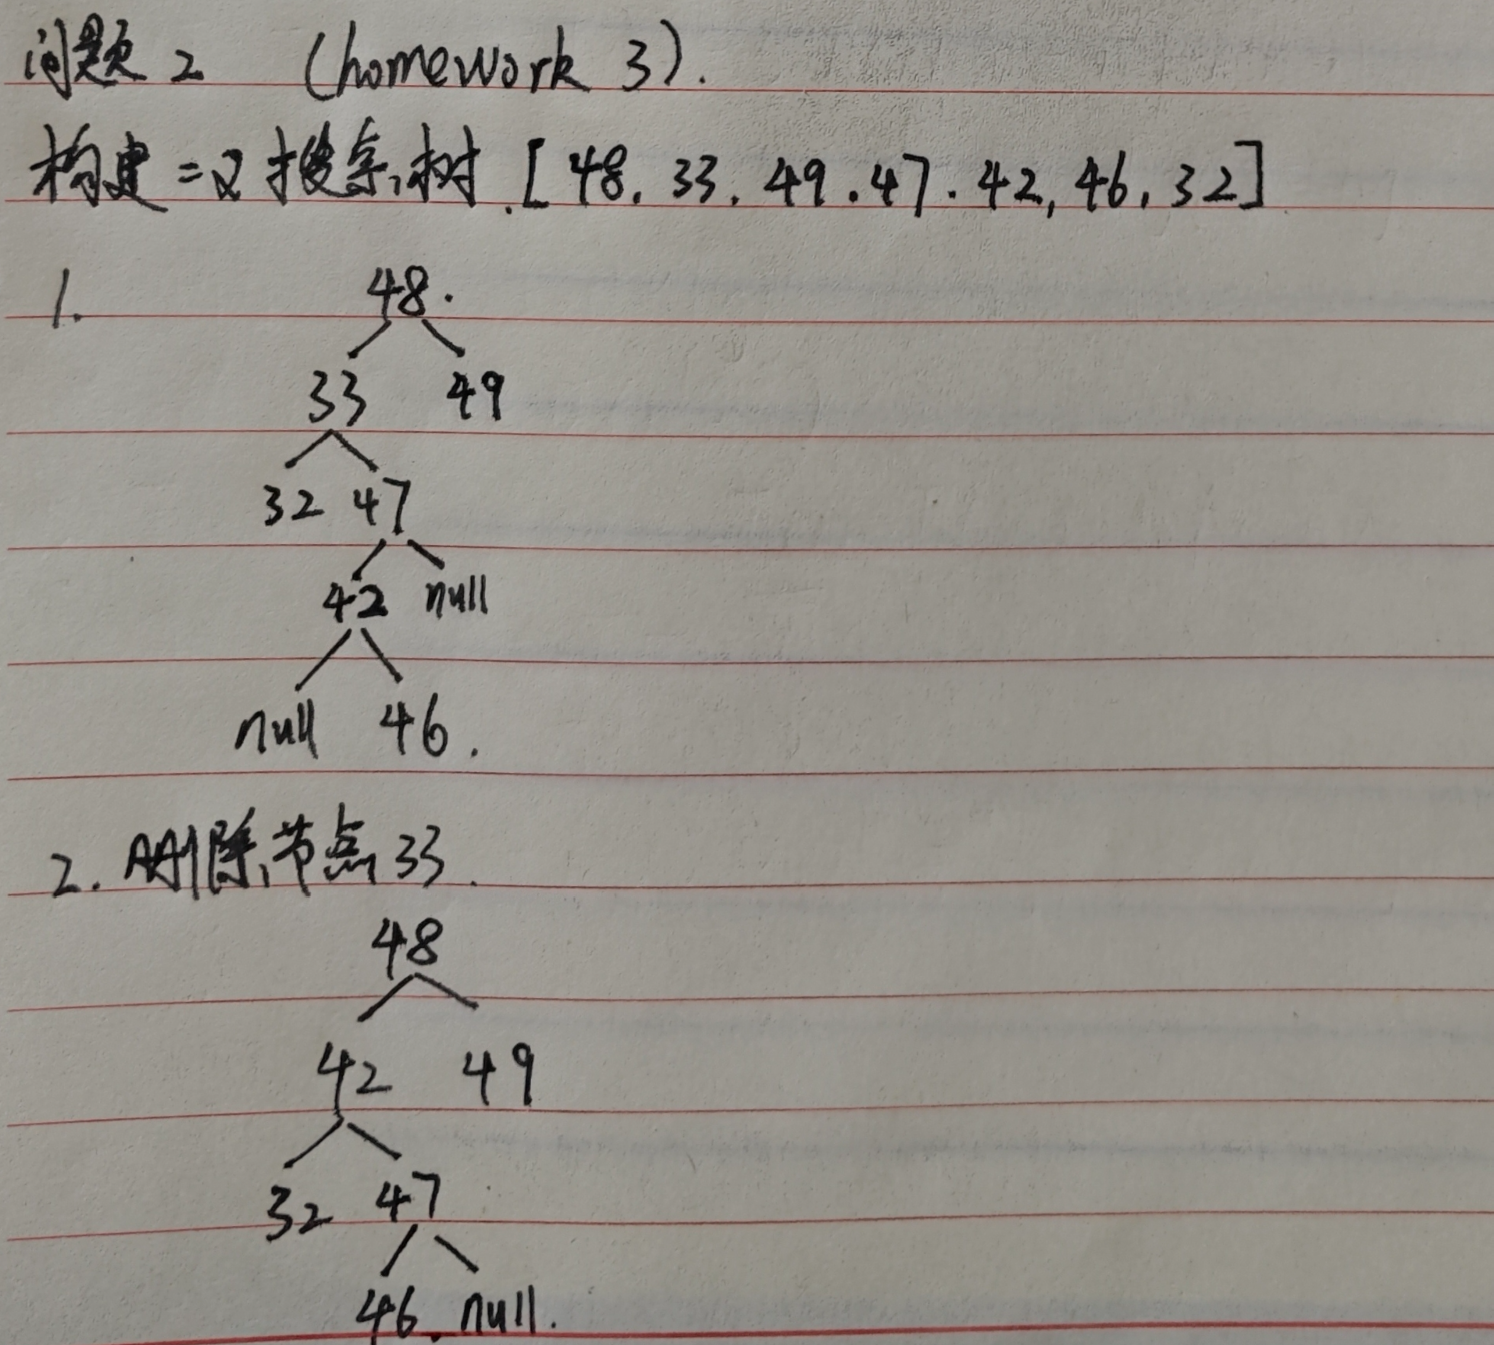 问题2 (homework 3).
构建二叉搜索树.[48, 33, 49.47.42,46,32]
1. 48.
33 49
32 47
42 null
null 46.
2. 删除节点33.
48
42 49
32 47
46. null.